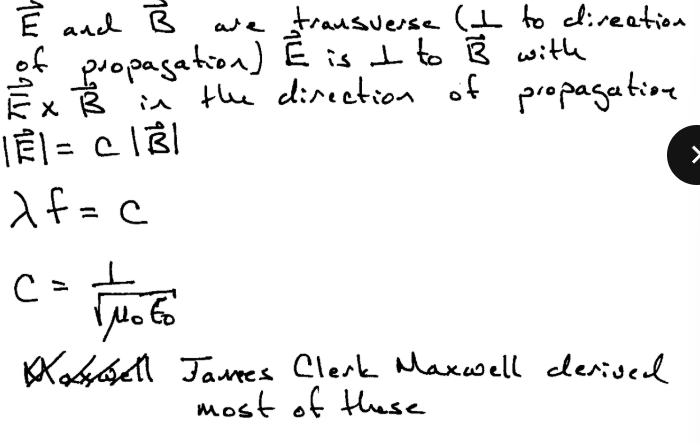 E⃗ and B⃗ are transverse (⊥ to direction
of propagation) E⃗ is ⊥ to B⃗ with
E⃗ x B⃗ in the direction of propagation
|E⃗| = c |B⃗|
λ f = c
c = 1/√(μ₀ ε₀)
Maxwell James Clerk Maxwell derived
most of these